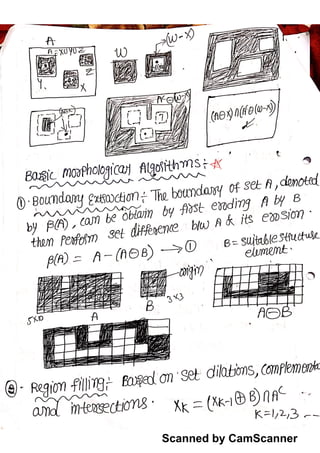 A
A = XUYUZ
Z
Y.
X
W
(W-X)
A⊖W
(A⊖X)∩(A^c⊖(W-X))
Basic Morphological Algorithms:-
① Boundary Extraction:- The boundary of set A, denoted
by β(A), can be obtain by first eroding A by B
then perform set difference b/w A & its erosion.
β(A) = A-(A⊖B) → ①
B = suitable structure
element.
origin
3x3
A
B
A⊖B
②. Region filling:- Based on set dilations, complements
and intersections.
X_K = (X_K-1 ⊕ B) ∩ A^C
K=1,2,3 --
Scanned by CamScanner